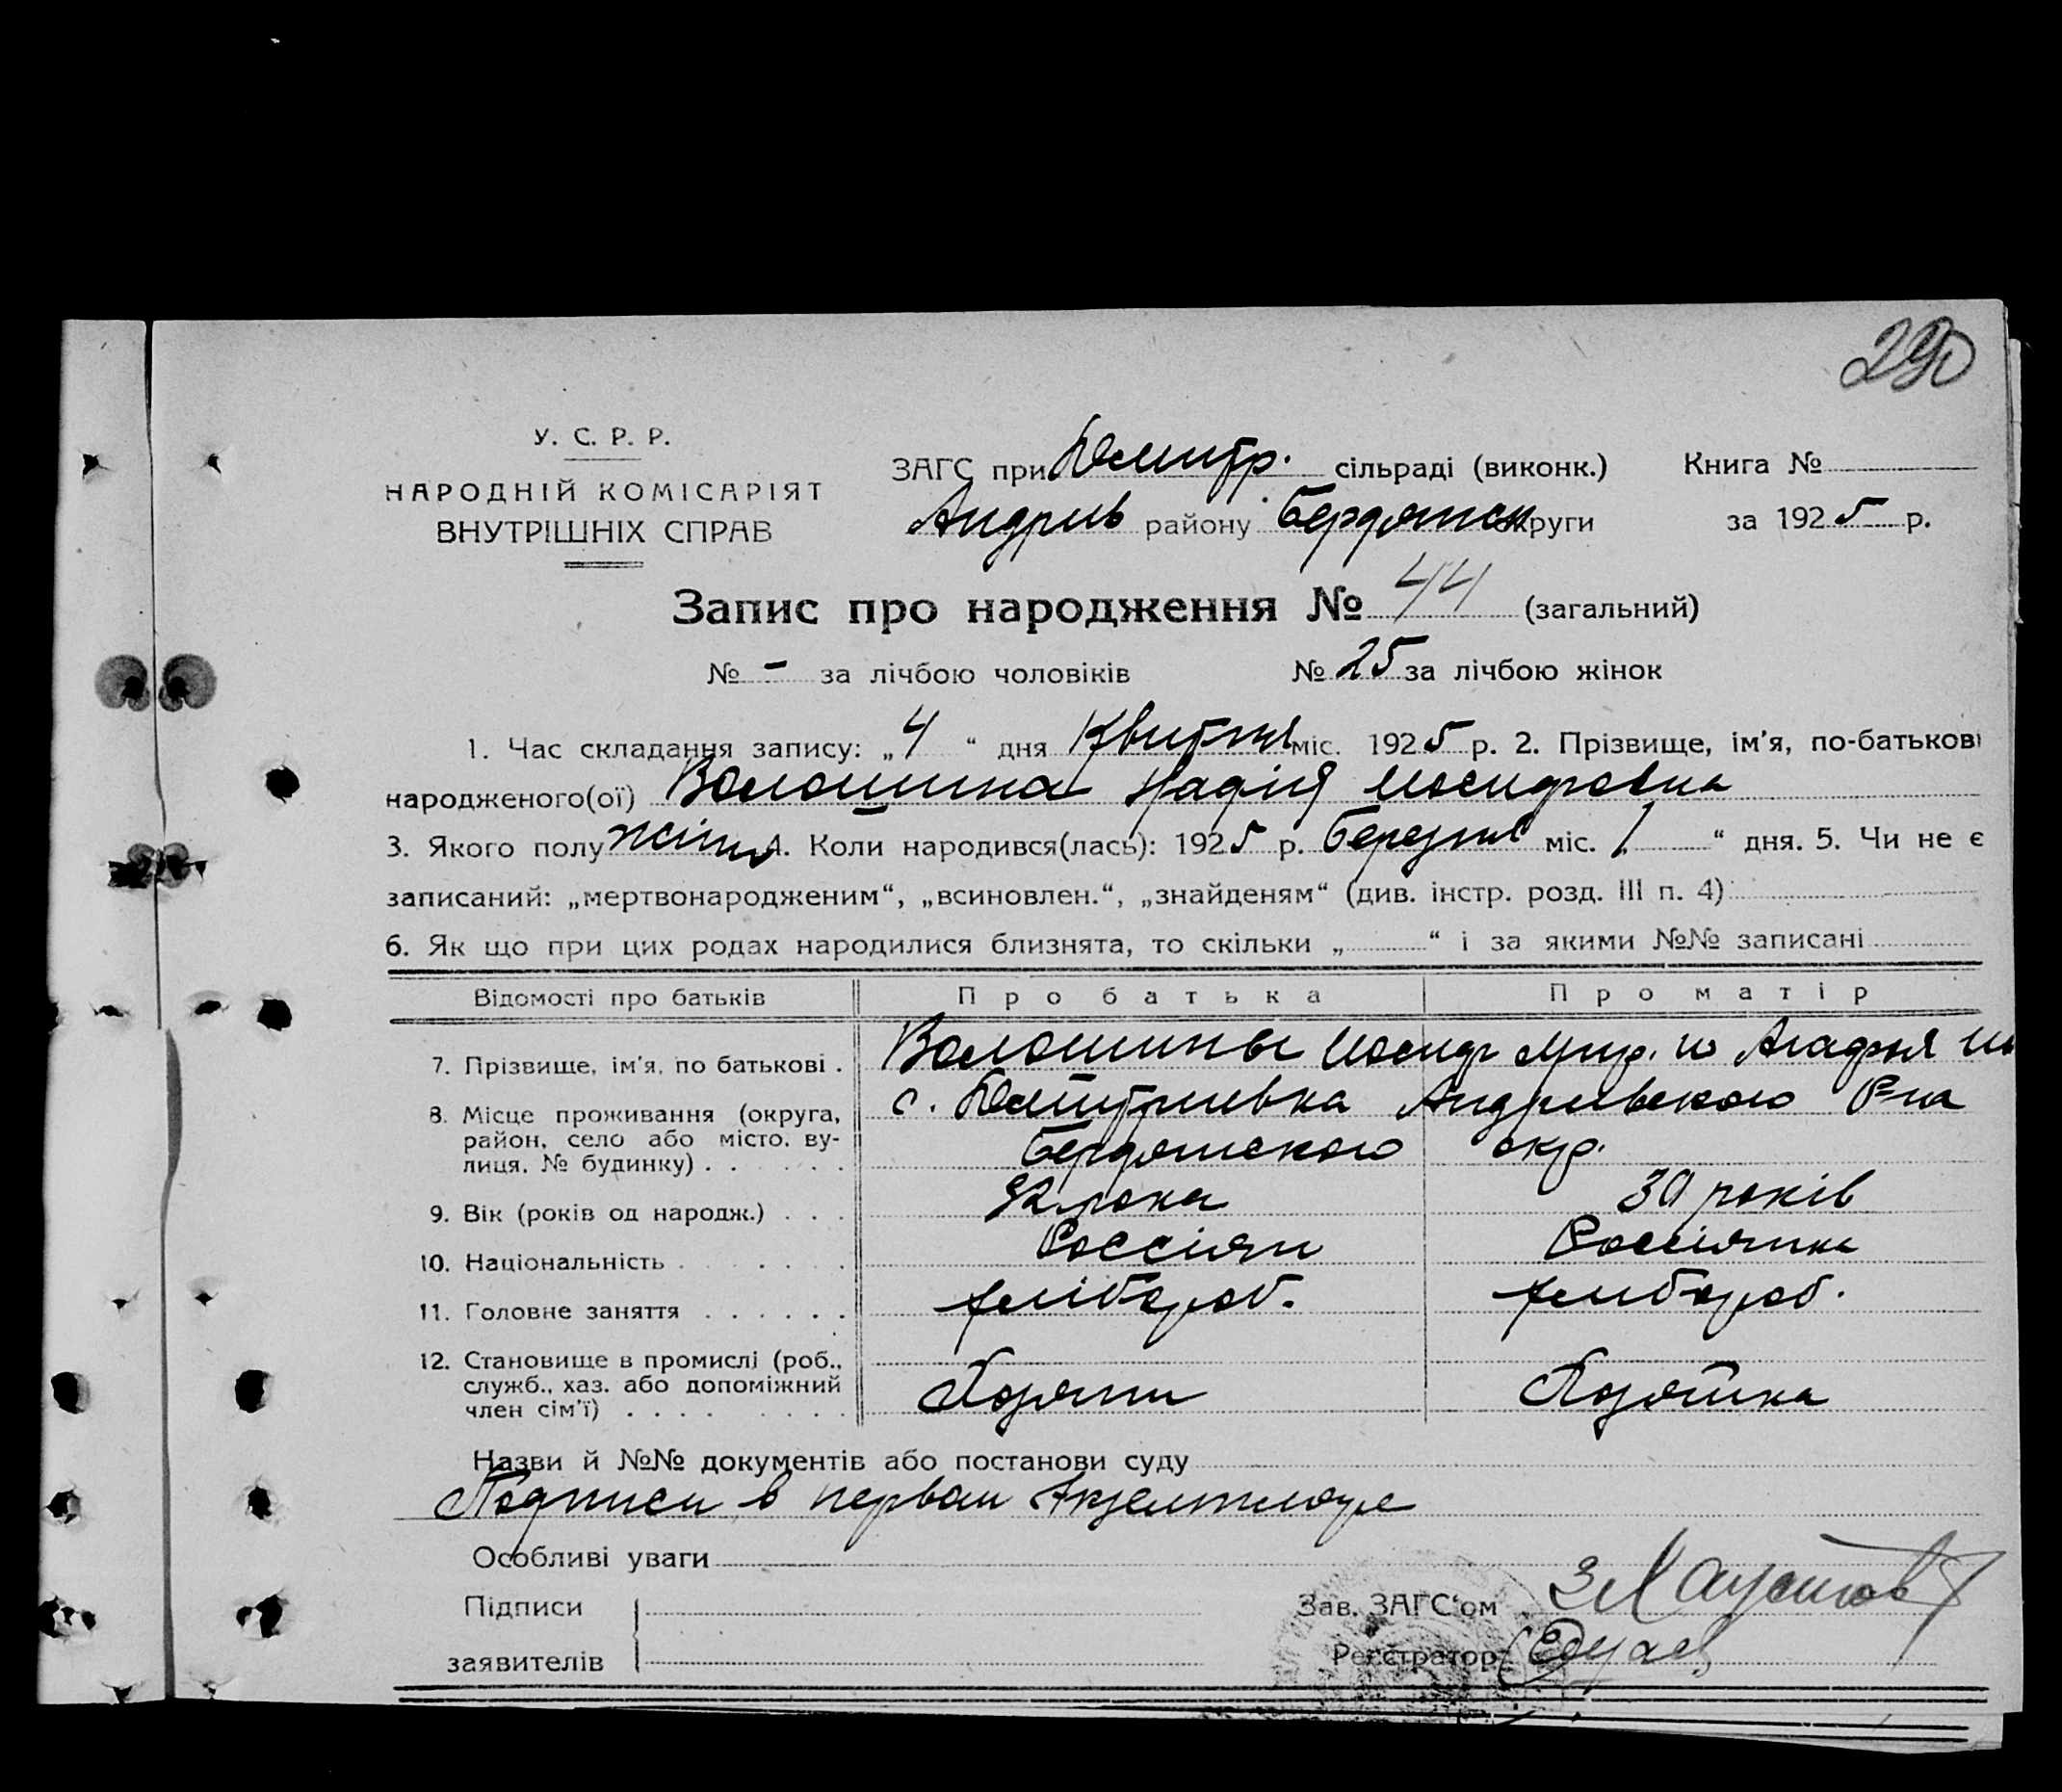 290
У. С. Р. Р.
НАРОДНІЙ КОМІСАРІЯТ
ВНУТРІШНІХ СПРАВ
ЗАГС при Дмитр. сільраді (виконк.) Книга №
Андрив району Бердянск округи за 1925 р.
Запис про народження № 44 (загальний)
№ - за лічбою чоловіків № 25 за лічбою жінок
1. Час складання запису: „4“ дня Квитня міс. 1925 р. 2. Прізвище, ім'я, по-батькові
народженого(ої) Волошина Надія Иосифовна
3. Якого полу жіноч 4. Коли народився(лась): 1925 р. березня міс. „1“ дня. 5. Чи не є
записаний: „мертвонародженим“, „всиновлен.“, „знайденям“ (див. інстр. розд. III п. 4)
6. Як що при цих родах народилися близнята, то скільки „ “ і за якими №№ записані
Відомості про батьків Про батька Про матір
7. Прізвище, ім'я, по батькові . Волошины Иосиф и Агафья
8. Місце проживання (округа, с. Дмитриевка Андриевского Р-на
район, село або місто, ву-
лиця, № будинку) . . . . . . Бердянского окр.
9. Вік (років од народж.) . . . 32 рока 30 років
10. Національність . . . . . . Россіян Россіянка
11. Головне заняття . . . . . . хліббороб. хлибороб.
12. Становище в промислі (роб.,
служб., хаз. або допоміжний
член сім'ї) . . . . . . . . .
Назви й №№ документів або постанови суду
Подписи в первом экземпляре
Особливі уваги
Підписи
Зав. ЗАГС'ом
заявителів
Реєстратор